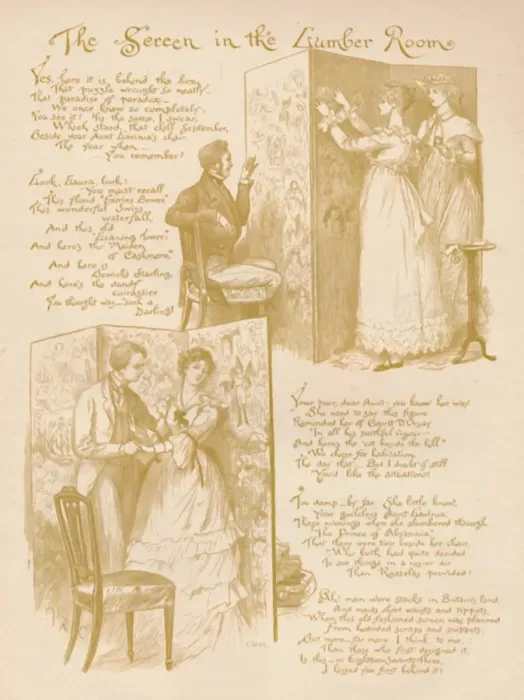 The Screen in the Lumber Room
Yes, here it is, behind the box,
That puzzle wrought so neatly—
That paradise of paradox—
We once knew so completely;
You see it? 'Tis the same, I swear,
Which stood, that chill September,
Beside your Aunt Lavinia's chair
The year when—
You remember?
Look, Laura, look!
You must recall
This florid "Fairies' Bower,"
This wonderful Swiss
waterfall,
And this old
"Leaning Tower;"
And here's the "Maiden
of Cashmere,"
And here is
Bewick's Starling,
And here's the dandy
cuirassier
You thought was—"such a
Darling!"
Your poor dear Aunt! you know her way,
She used to say this figure
Reminded her of Count D'Orsay
"In all his youthful vigour;"
And here's the "cot beside the hill"
We chose for habitation,
The day that— But I doubt if still
You'd like the situation!
Too damp—by far. She little knew,
Your guileless Aunt Lavinia,
Those evenings when she slumbered through
"The Prince of Abyssinia,"
That there were two beside her chair
Who both had quite decided
To see things in a rosier air
Than Rasselas provided!
Ah! men wore stocks in Britain's land,
And maids short waists and tippets,
When this old-fashioned screen was planned
From hoarded scraps and snippets;
But more—far more, I think—to me
Than those who first designed it,
Is this—in Eighteen Seventy-Three
I kissed you first behind it!